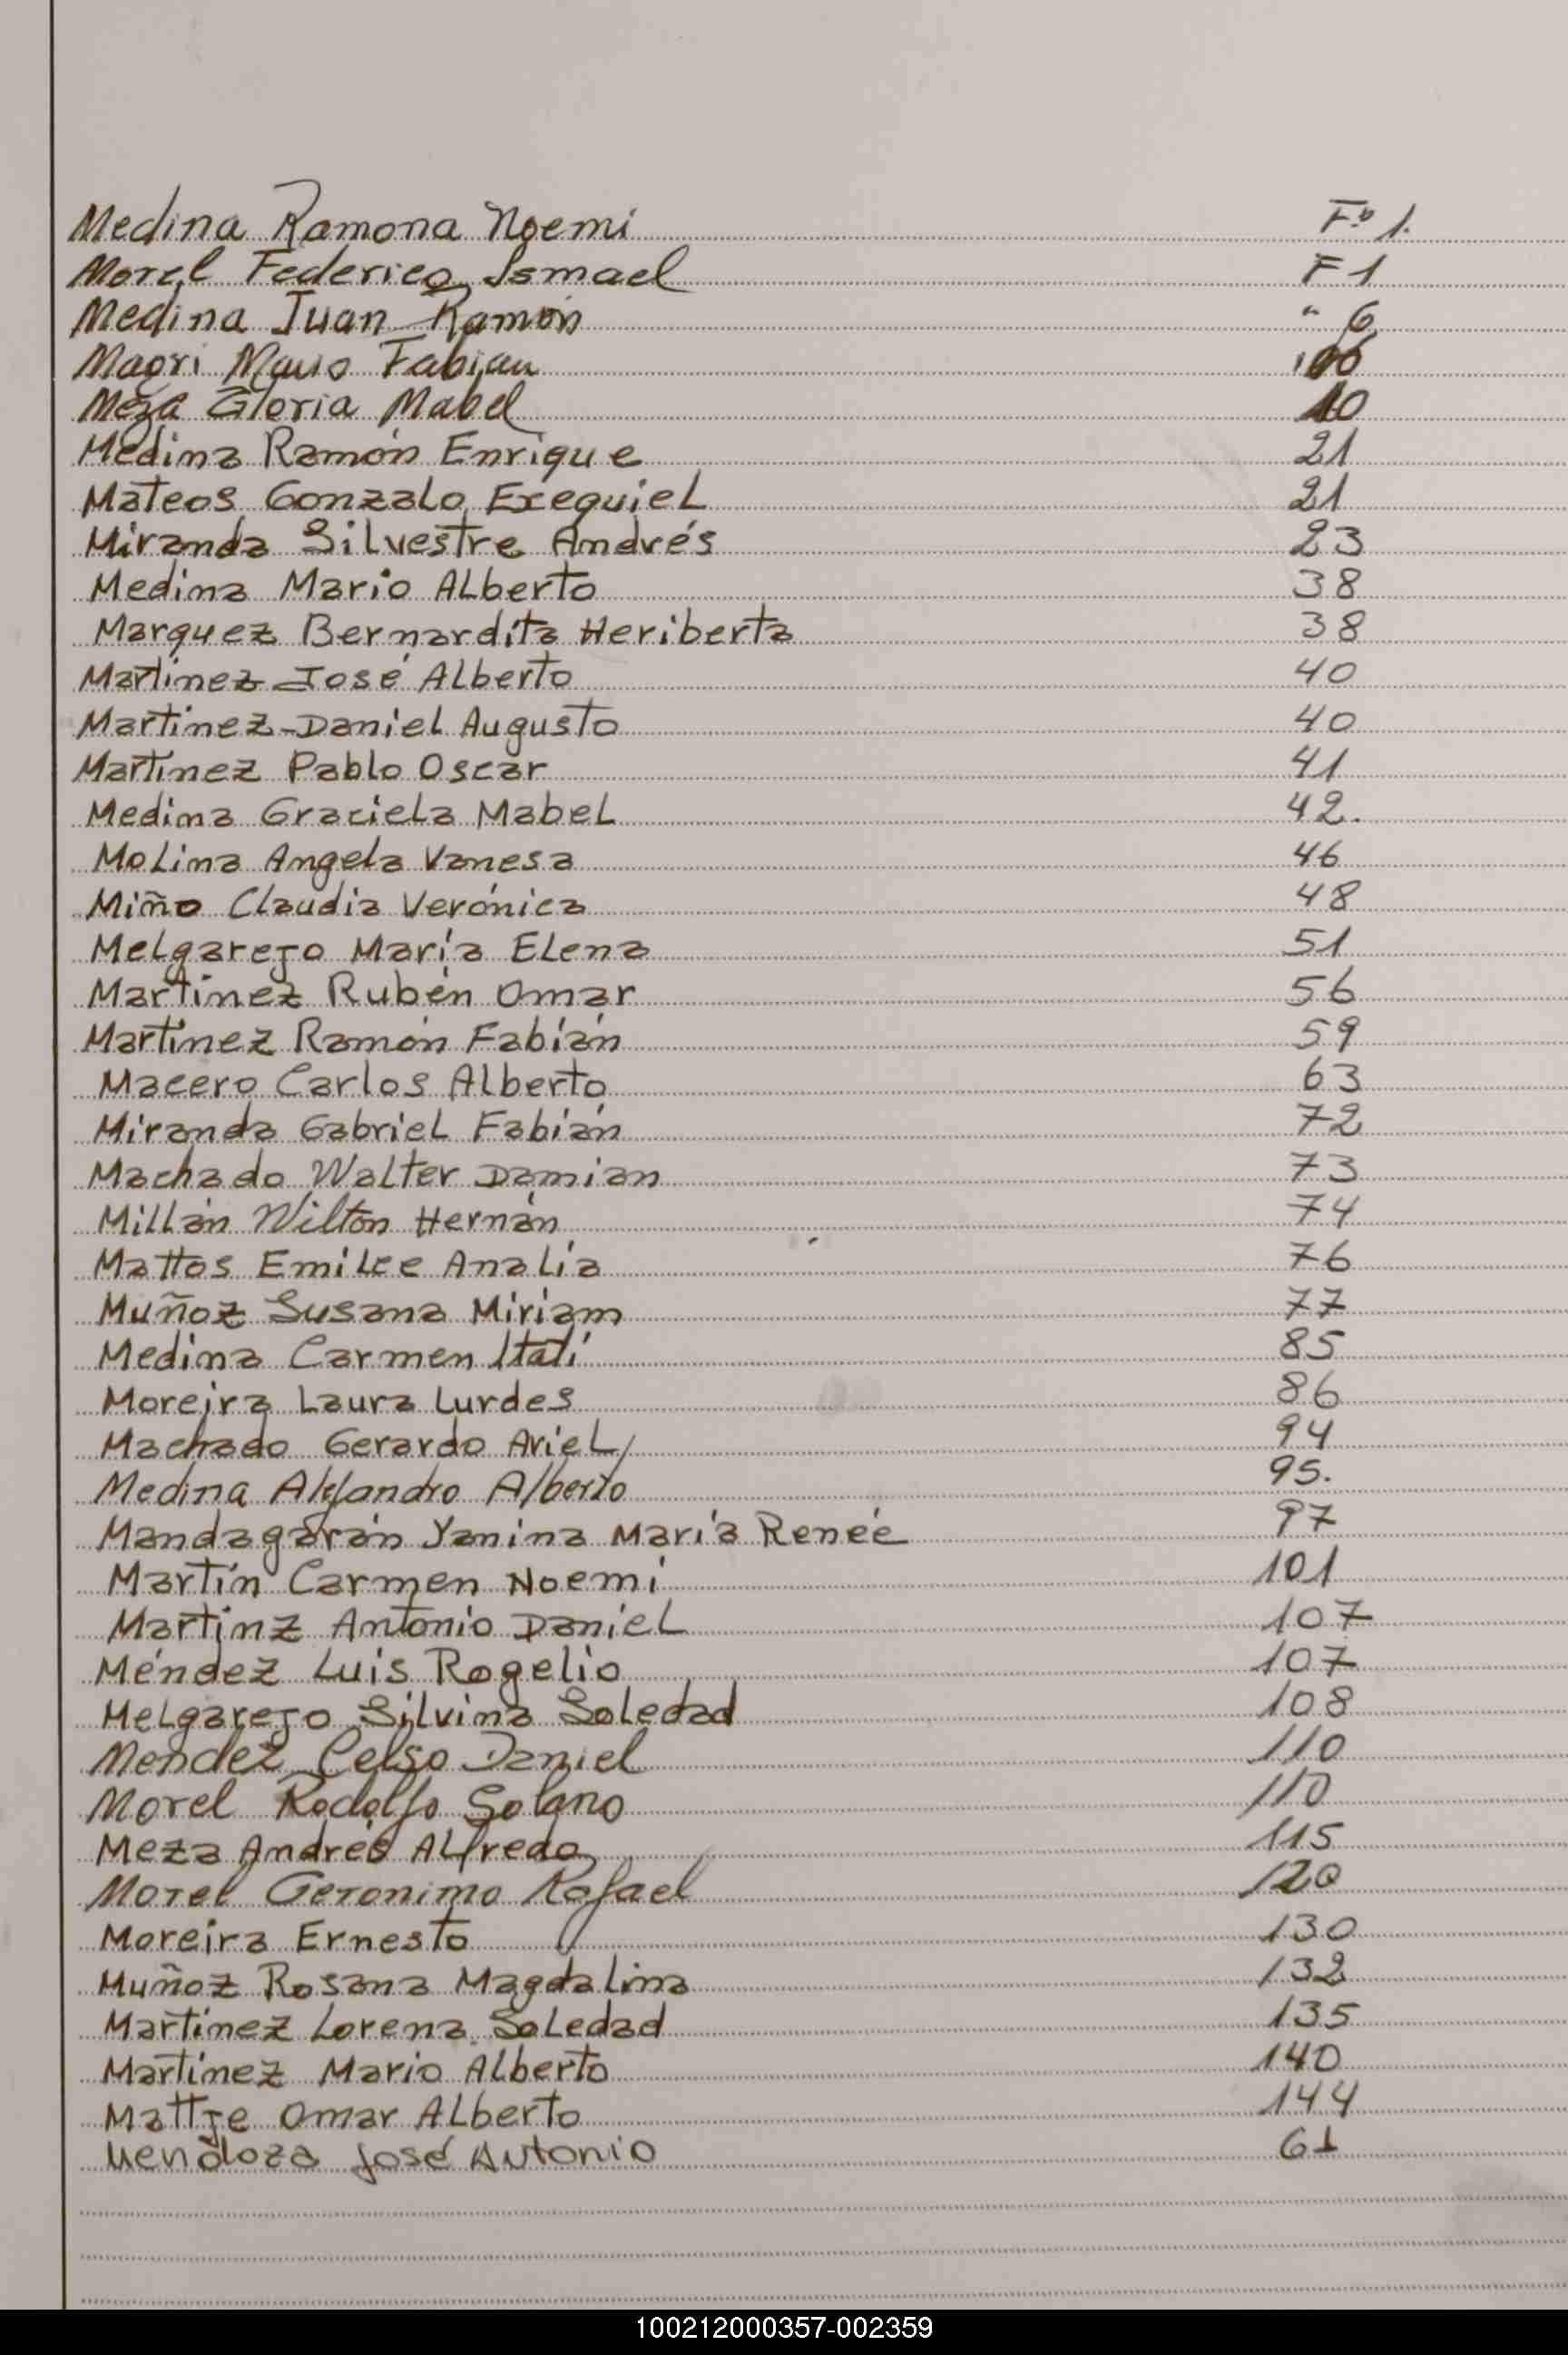 Medina Ramona Noemi Fº 1.
Morel Federico Ismael F 1
Medina Juan Ramón " 6
Magri Mario Fabian
Meza Gloria Mabel 10
Medina Ramón Enrique 21
Mateos Gonzalo Exequiel 21
Miranda Silvestre Andrés 23
Medina Mario Alberto 38
Marquez Bernardita Heriberta 38
Martinez José Alberto 40
Martinez-Daniel Augusto 40
Martinez Pablo Oscar 41
Medina Graciela Mabel 42.
Molina Angela Vanesa 46
Miño Claudia Verónica 48
Melgarejo María Elena 51
Martinez Rubén Omar 56
Martinez Ramón Fabián 59
Macero Carlos Alberto 63
Miranda Gabriel Fabián 72
Machado Walter Damian 73
Millán Wilton Hernán 74
Mattos Emilce Analía 76
Muñoz Susana Miriam 77
Medina Carmen Itatí 85
Moreira Laura Lurdes 86
Machado Gerardo Ariel 94
Medina Alejandro Alberto 95.
Mandagarán Yanina María Renée 97
Martín Carmen Noemí 101
Martinz Antonio Daniel 107
Méndez Luis Rogelio 107
Melgarejo Silvina Soledad 108
Mendez Celso Daniel 110
Morel Rodolfo Solano 110
Meza Andrés Alfredo 115
Morel Geronimo Rafael 120
Moreira Ernesto 130
Muñoz Rosana Magdalina 132
Martínez Lorena Soledad 135
Martínez Mario Alberto 140
Mattje Omar Alberto 144
Mendoza José Antonio 61
100212000357-002359